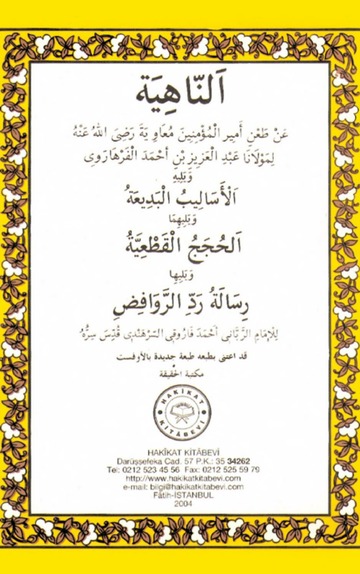 اَلنَّاهِيَة
عَنْ طَعْنِ أَمِيرِ الْمُؤْمِنِينَ مُعَاوِيَةَ رَضِىَ اللهُ عَنْهُ
لِمَوْلَانَا عَبْدِ الْعَزِيزِ بْنِ أَحْمَدَ الْفَرْهَارَوِى
وَيَلِيهِ
اَلْأَسَالِيبُ الْبَدِيعَةُ
وَيَلِيهِمَا
اَلْحُجَجُ الْقَطْعِيَّةُ
وَيَلِيهَا
رِسَالَةُ رَدِّ الرَّوَافِضِ
لِلْإِمَامِ الرَّبَّانِى أَحْمَدَ فَارُوقِى السَّرْهَنْدِى قُدِّسَ سِرُّهُ
قد اعتنى بطبعه طبعة جديدة بالأوفست
مكتبة الحقيقة
HAKİKAT KİTÂBEVİ
HAKÎKAT KİTÂBEVİ
Darüşşefeka Cad. 57 P.K.: 35 34262
Tel: 0212 523 45 56 Fax: 0212 525 59 79
http://www.hakikatkitabevi.com
e-mail: bilgi@hakikatkitabevi.com
Fâtih-İSTANBUL
2004